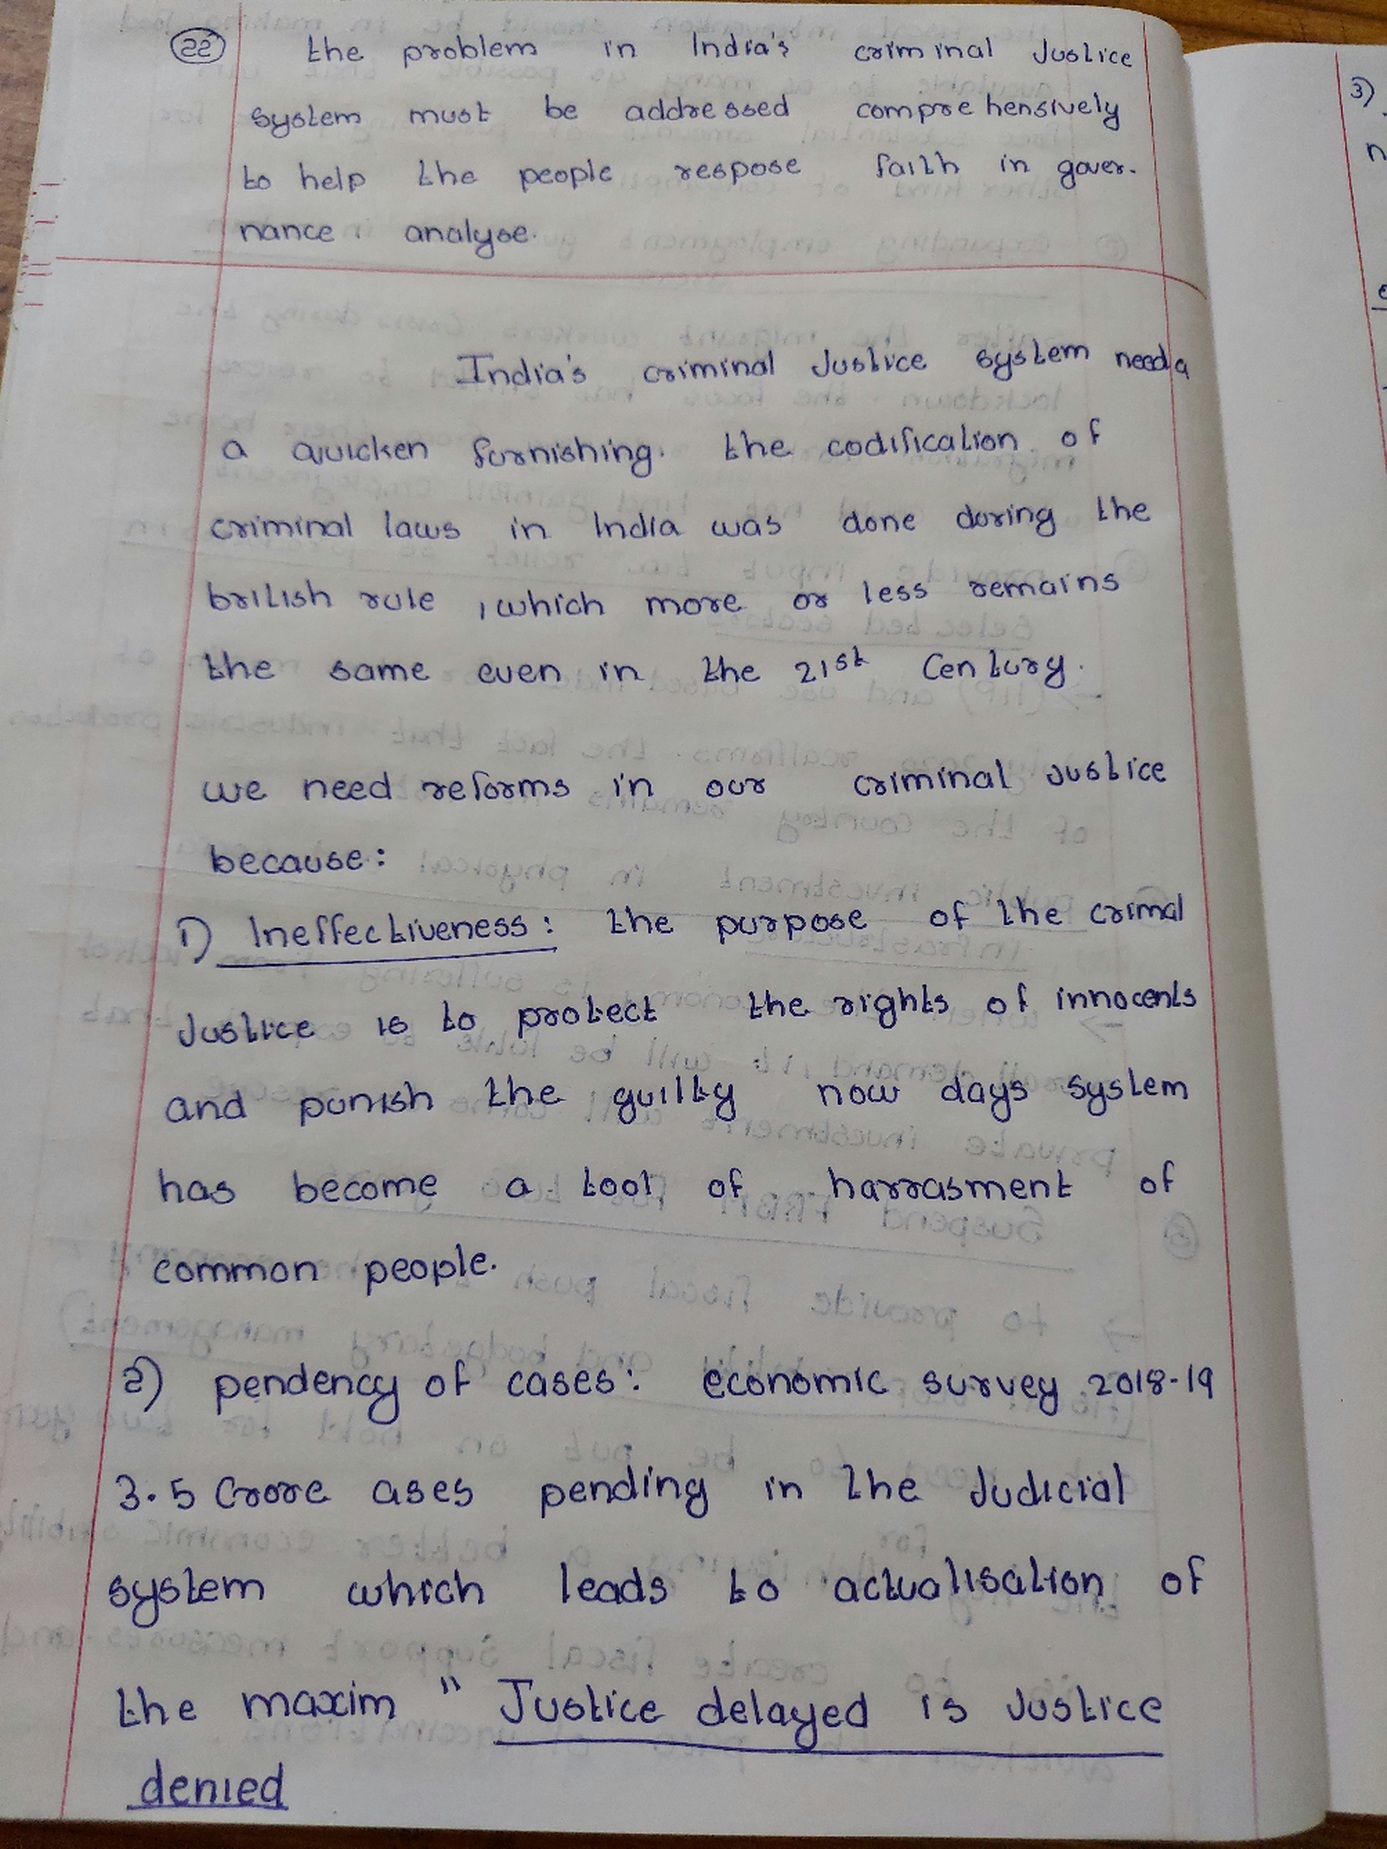 22 the problem in India's criminal Justice
system must be addressed comprehensively
to help the people respose faith in gover-
nance. analyse.
India's criminal Justice system need a
a quicken furnishing. the codification of
criminal laws in India was done during the
british rule, which more or less remains
the same even in the 21st Century.
we need reforms in our criminal justice
because:
1) Ineffectiveness: the purpose of the crimal
Justice is to protect the rights of innocents
and punish the guilty now days system
has become a tool of harrasment of
common people.
2) pendency of cases: economic survey 2018-19
3.5 Crore ases pending in the Judicial
system which leads to actualisation of
the maxim " Justice delayed is Justice
denied
3)
n